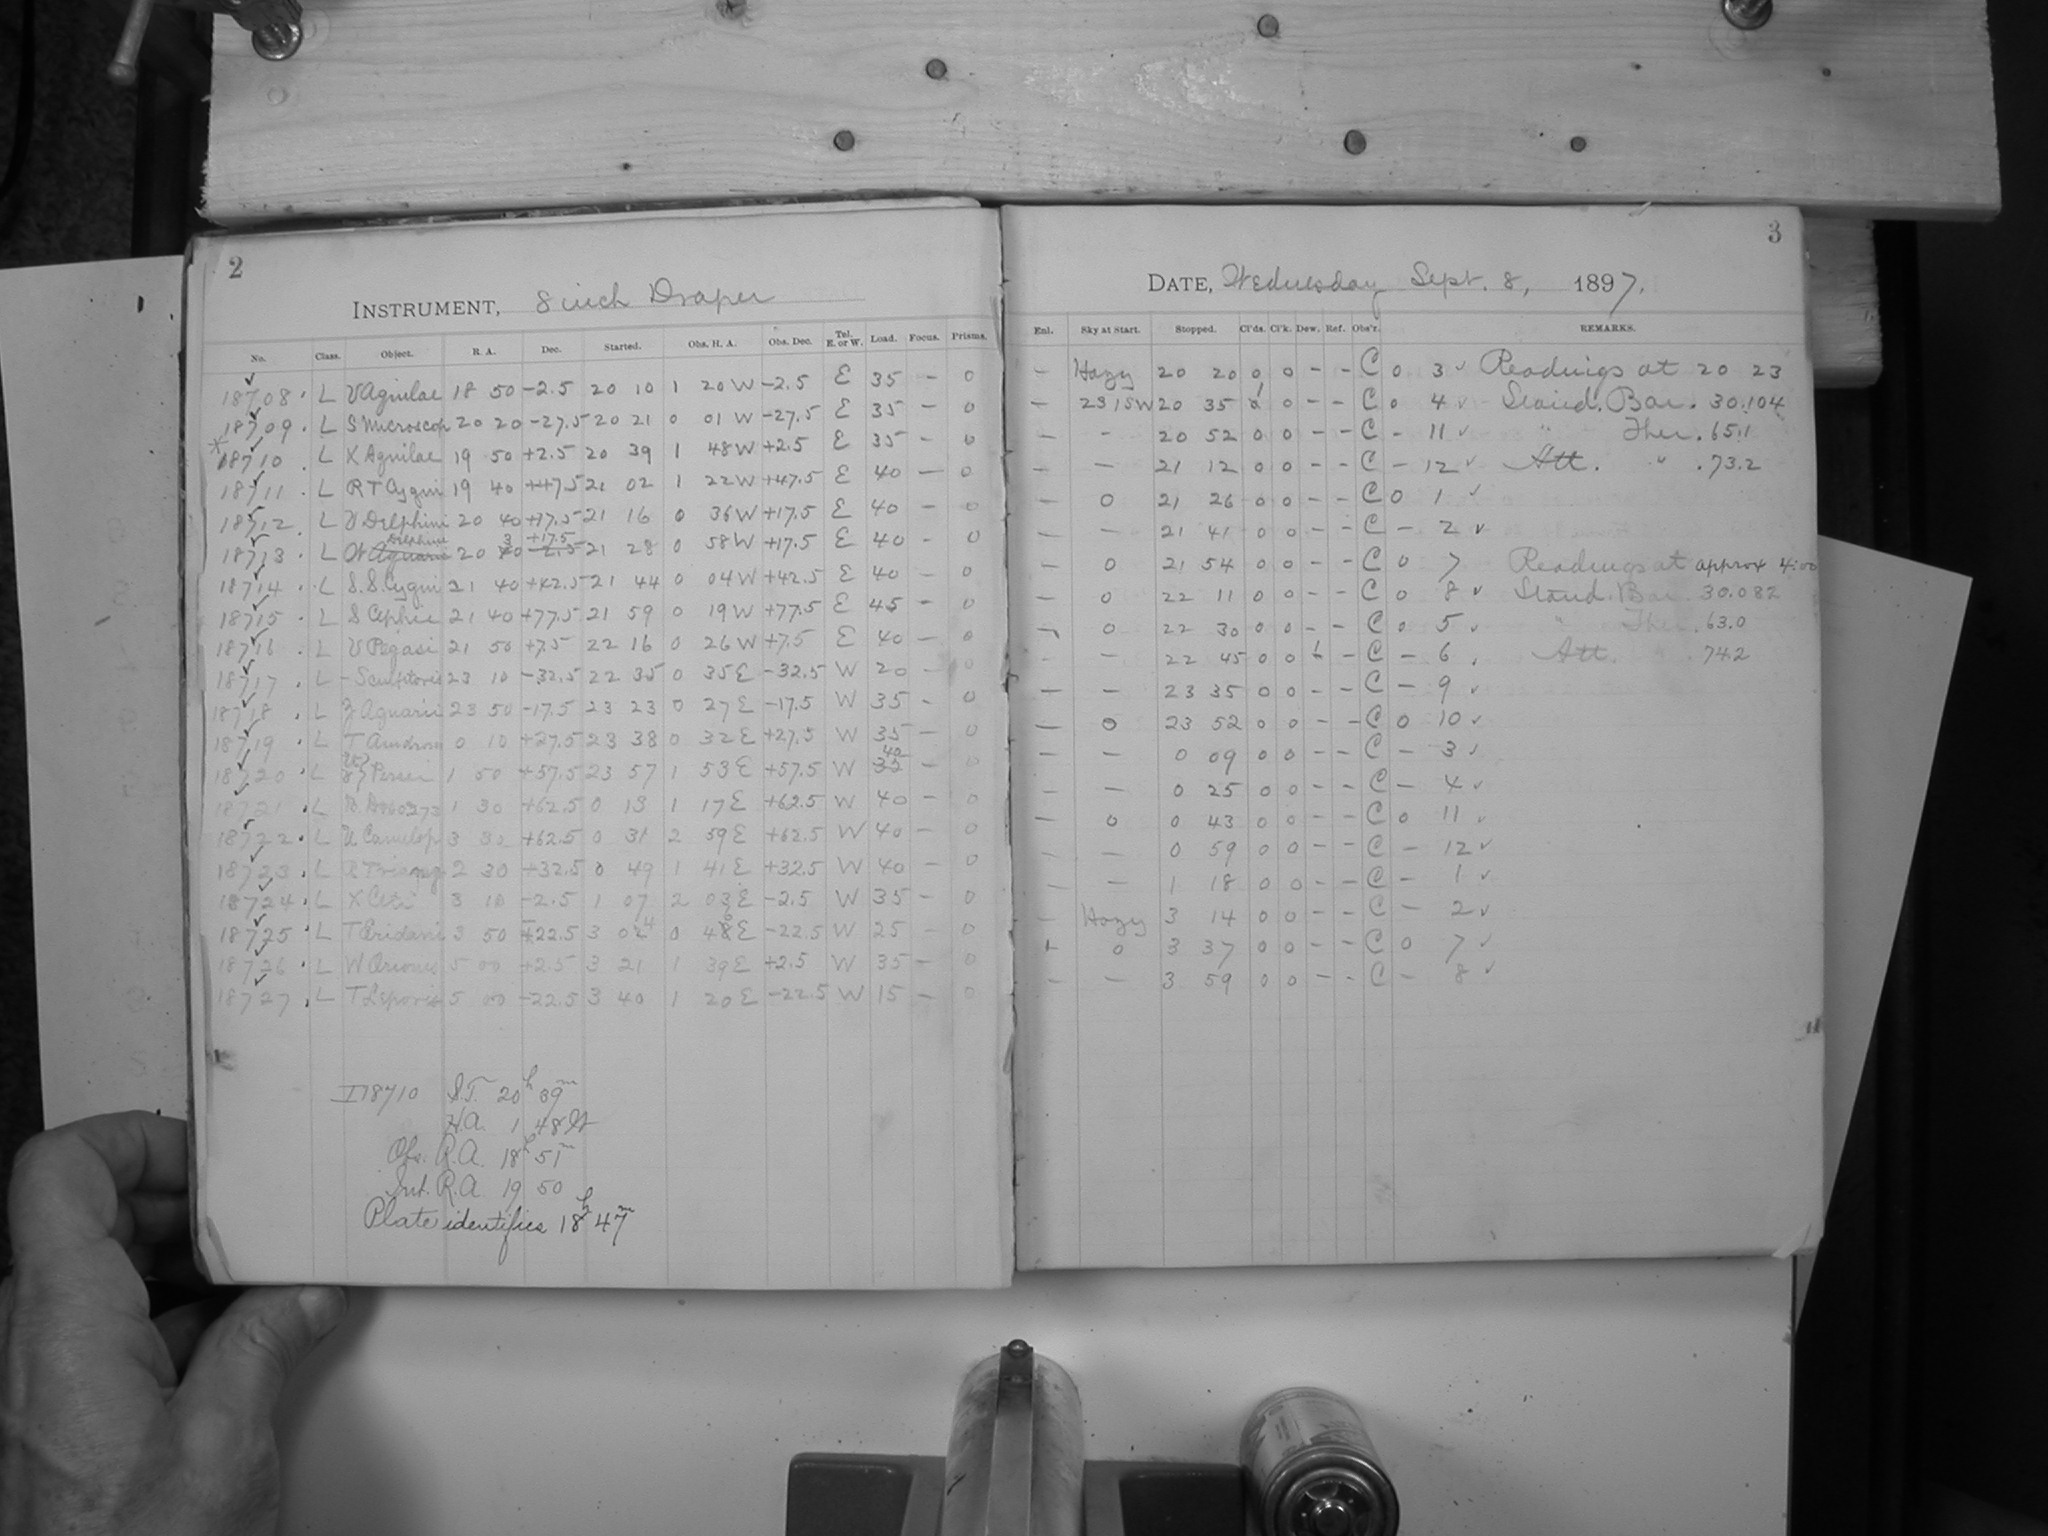 2
INSTRUMENT, 8 inch Draper
No. Class. Object. R. A. Dec. Started. Obs. H. A. Obs. Dec. Tel. E. or W. Load. Focus. Prisms.
18708 L V Aquilae 18 50 -2.5 20 10 1 20 W -2.5 E 35 - 0
18709 L S Microscop 20 20 -27.5 20 21 0 01 W -27.5 E 35 - 0
18710 L X Aquilae 19 50 +2.5 20 39 1 48 W +2.5 E 35 - 0
18711 L RT Cygni 19 40 +47.5 21 02 1 22 W +47.5 E 40 - 0
18712 L V Delphini 20 40 +17.5 21 16 0 36 W +17.5 E 40 - 0
Delphini 3 +17.5
18713 L W Aquarii 20 40 -2.5 21 28 0 58 W +17.5 E 40 - 0
18714 L S.S. Cygni 21 40 +42.5 21 44 0 04 W +42.5 E 40 - 0
18715 L S Cephei 21 40 +77.5 21 59 0 19 W +77.5 E 45 - 0
18716 L V Pegasi 21 50 +7.5 22 16 0 26 W +7.5 E 40 - 0
18717 L - Sculptoris 23 10 -32.5 22 35 0 35 E -32.5 W 20 - 0
18718 L Z Aquarii 23 50 -17.5 23 23 0 27 E -17.5 W 35 - 0
18719 L T Androm 0 10 +27.5 23 38 0 32 E +27.5 W 35 - 0
40
18720 L Persei 1 50 +57.5 23 57 1 53 E +57.5 W 35 - 0
18721 L 1 30 +62.5 0 13 1 17 E +62.5 W 40 - 0
18722 L U Camelop 3 30 +62.5 0 31 2 59 E +62.5 W 40 - 0
18723 L R Triang 2 30 +32.5 0 49 1 41 E +32.5 W 40 - 0
18724 L X Ceti 3 10 -2.5 1 07 2 03 E -2.5 W 35 - 0
18725 L T Eridani 3 50 -22.5 3 02 4 0 48 E -22.5 W 25 - 0
18726 L W Orionis 5 00 +2.5 3 21 1 39 E +2.5 W 35 - 0
18727 L T Leporis 5 00 -22.5 3 40 1 20 E -22.5 W 15 - 0
I 18710 S.T. 20h 39m
H.A. 1 48 W
Obs. R.A. 18h 51m
Int. R.A. 19 50
Plate identifies 18h 47m
3
DATE, Wednesday Sept. 8, 1897.
Enl. Sky at Start. Stopped. Cl'ds. Cl'k. Dew. Ref. Obs'r. REMARKS.
- Hazy 20 20 0 0 - - C 0 3 Readings at 20 23
- 23 15W 20 35 1 0 - - C 0 4 Stand. Bar. 30.104
- - 20 52 0 0 - - C - 11 " Ther. 65.1
- - 21 12 0 0 - - C - 12 Att. " .73.2
- 0 21 26 0 0 - - C 0 1
- - 21 41 0 0 - - C - 2
- 0 21 54 0 0 - - C 0 7 Readings at approx 4:00
- 0 22 11 0 0 - - C 0 8 Stand. Bar 30.082
- 0 22 30 0 0 - - C 0 5 " Ther .63.0
- - 22 45 0 0 - C - 6 Att. " .742
- - 23 35 0 0 - - C - 9
- 0 23 52 0 0 - - C 0 10
- - 0 09 0 0 - - C - 3
- - 0 25 0 0 - - C - 4
- 0 0 43 0 0 - - C 0 11
- - 0 59 0 0 - - C - 12
- - 1 18 0 0 - - C - 1
- Hazy 3 14 0 0 - - C - 2
- 0 3 37 0 0 - - C 0 7
- - 3 59 0 0 - - C - 8